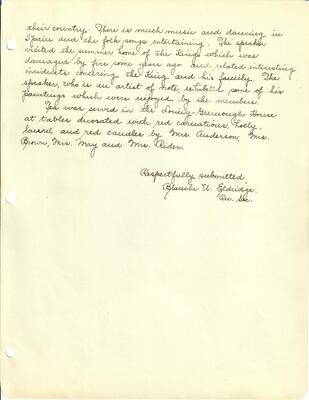 their country. There is much music and dancing in
Spain and the folk songs entertaining. The speaker
visited the summer home of the Kings which was
damaged by fire some years ago and related interesting
incidents concerning the King and his family. The
speaker, who is an artist of note, exhibited some of his
paintings which were enjoyed by the members.
Tea was served in the Loring-Greenough House
at tables decorated with red carnations, holly,
laurel and red candles by Mrs. Anderson, Mrs.
Brown, Mrs. May and Mrs. Rider.
Respectfully submitted,
Blanche U. Eldridge.
Rec. Sec.